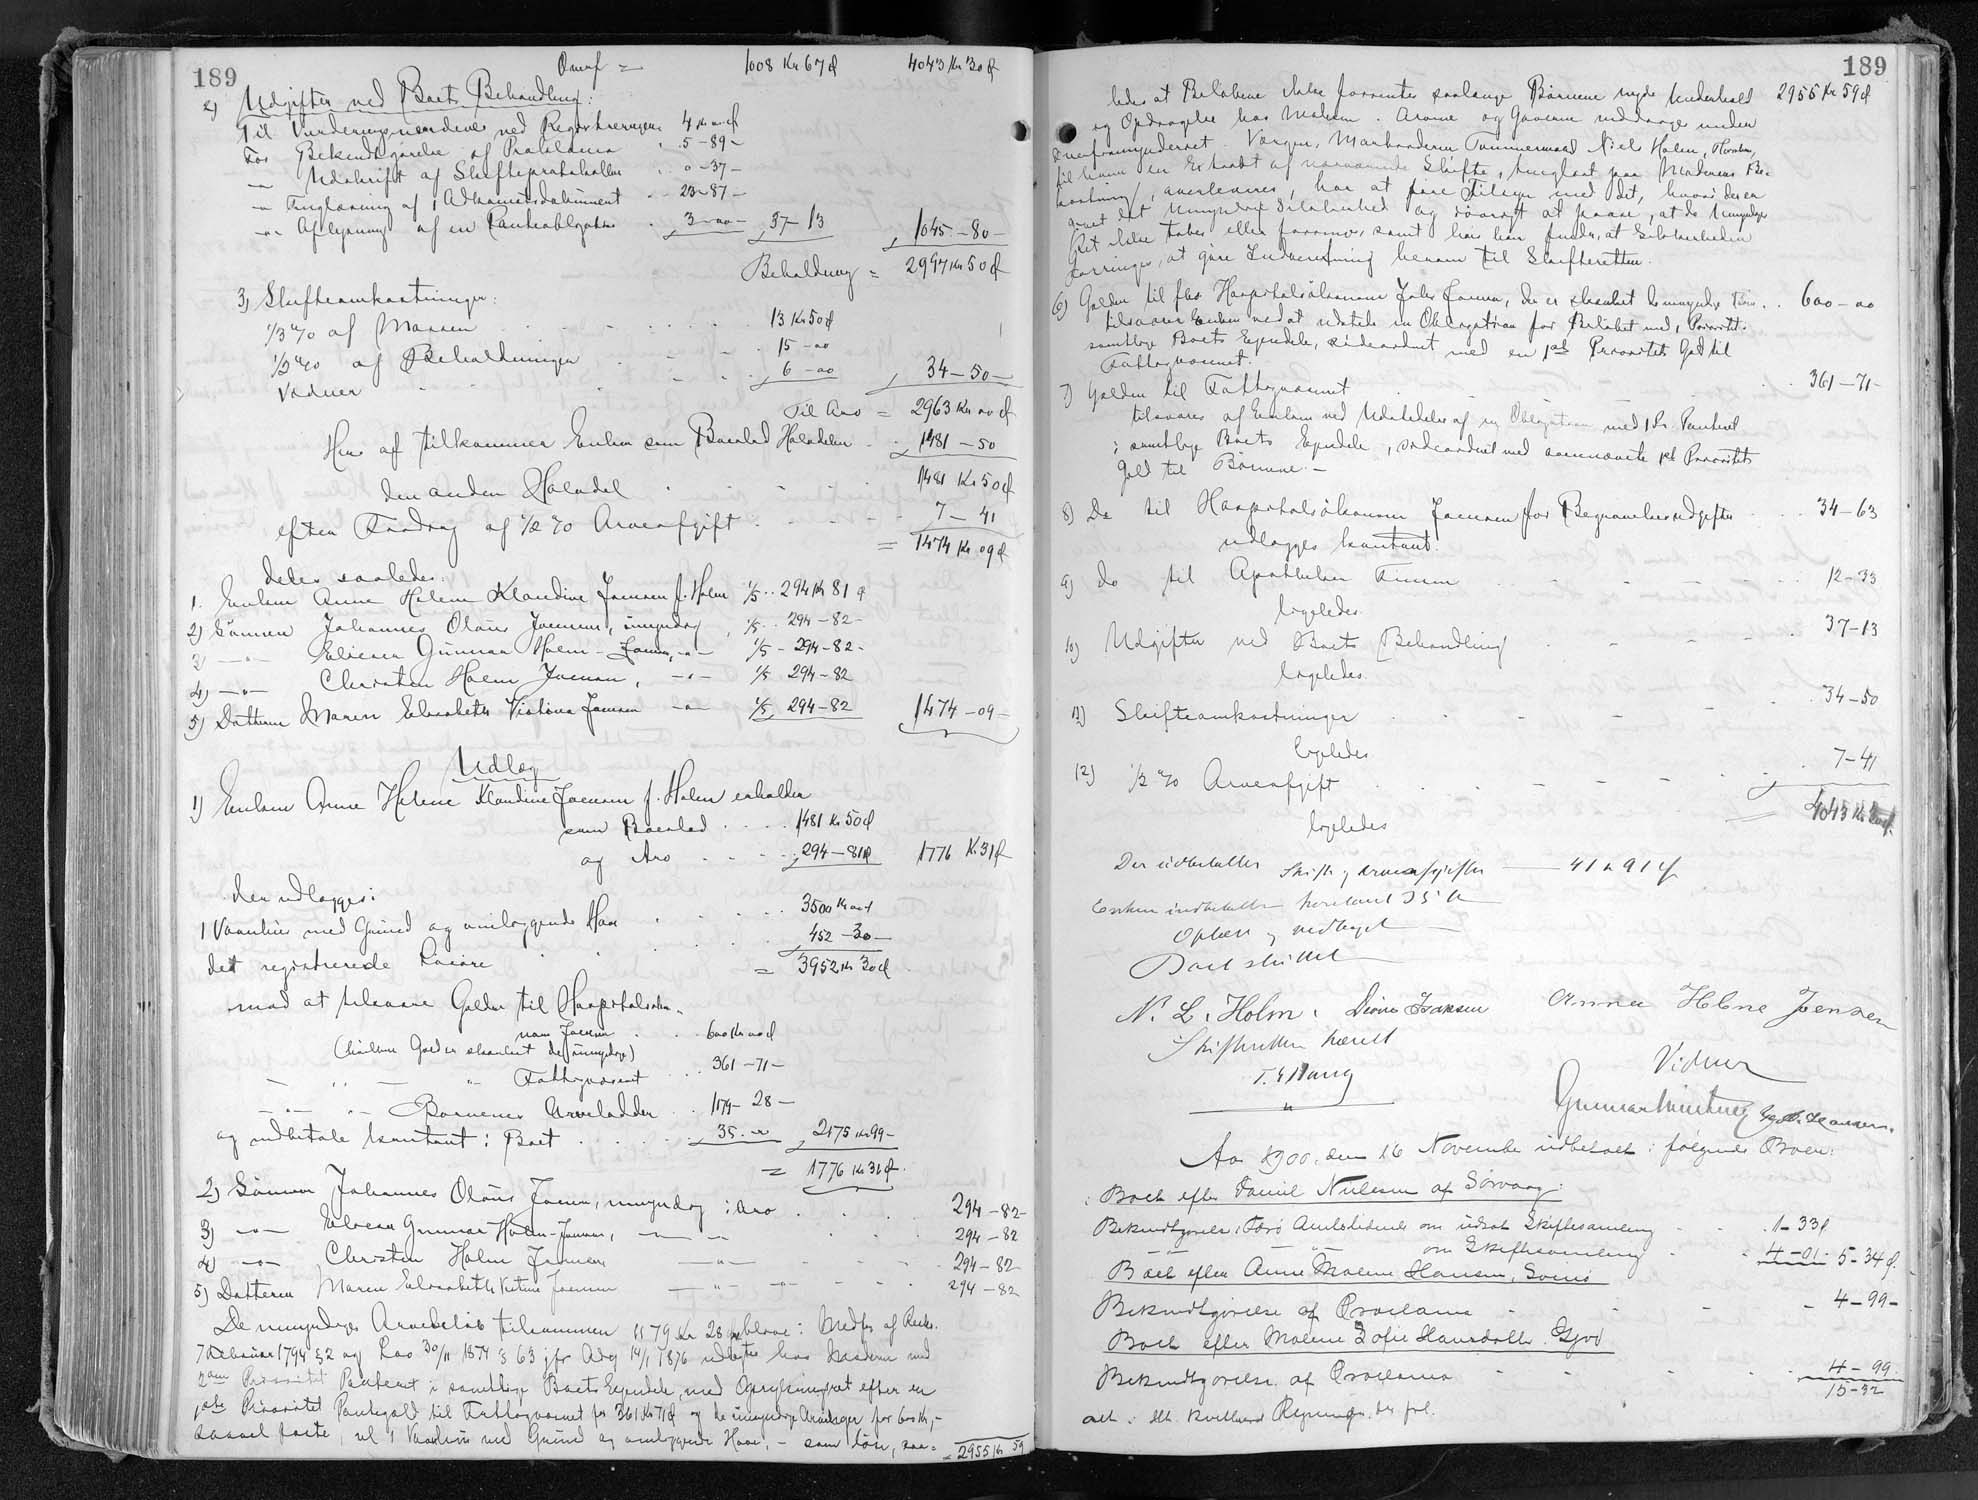 189
Omsf = 1008 Kr 67 Ø 4043 Kr 30 Ø
2) Udgifter ved Boets Behandling:
Til Vurderingsmændene ved Registreringen 4 Kr 00 Ø
For Bekendtgørelse af Proklama 5-89-
-"- Udskrift af Skifteprotokollen 0-37-
-"- Tinglæsning af 1 Adkomstdokument 23-87-
-"- Aflysning af en Panteobligation 3-00- 37-13 1045-80-
Beholdning = 2997 Kr 50 Ø
3) Skifteomkostninger:
1/3 % af Massen 13 Kr 50 Ø
1/2 % af Beholdningen 15-00
Vidner 6-00 34-50-
Til Arv = 2963 Kr 00 Ø
Her af tilkommer Enken som Boeslod Halvdelen 1481-50
den anden Halvdel 1481 Kr 50 Ø
efter Fradrag af 1/2 % Arveafgift 7-41
= 1474 Kr 09 Ø
deles saaledes:
1. Enken Anne Helene Klandine Joensen f. Holm 1/5 .. 294 Kr 81 Ø
2) Sønnen Johannes Olaus Joensen, umyndig, 1/5 .. 294-82-
3) -"- Elieser Gunnar Holm-Joensen, -"- 1/5 - 294-82-
4) -"- Christen Holm Joensen, -"- 1/5 294-82
5) Datteren Maren Elisabeth Victoria Joensen -"- 1/5 294-82 1474-09-
Udlæg
1) Enken Anne Helene Klandine Joensen f. Holm erholder
som Boeslod 1481 Kr 50 Ø
og Arv 294-81 Ø 1776 Kr 31 Ø
der udlægges:
1 Vaanhus med Grund og omliggende Have 3500 Kr 00 Ø
det registrerede Løsøre 452-30-
= 3952 Kr 30 Ø
mod at tilsvare Gælden til Hospitalsøko-
nom Joensen 600 Kr 00 Ø
(hvilken Gæld er skænket de umyndige)
-"- Fattigvæsenet 361-71-
-"- Børnenes Arvelodder 1179-28-
og indbetale kontant i Boet 35-00 2175 Kr 99-
= 1776 Kr 31 Ø
2) Sønnen Johannes Olaus Joensen, umyndig i Arv 294-82-
3) -"- Elieser Gunnar Holm-Joensen, -"- 294-82
4) -"- Christen Holm Joensen -"- 294-82-
5) Datteren Maren Elisabeth Victoria Joensen -"- 294-82
De umyndiges Arvedele tilsammen 1179 Kr 28 Ø blive i Medfør af Reskr.
7 Februar 1794 § 2 og Lov 30/11 1874 § 63 jfr Adg 14/1 1876 udsatte hos Moderen med
2den Prioritet Panteret i samtlige Boets Ejendele, med Oprykningsret efter en
1ste Prioritet Pantegæld til Fattigvæsenet for 361 Kr 71 Ø og de umyndige Arvinger for 600 Kr,-
saavel faste, nl. 1 Vaanhus med Grund og omliggende Have, - som løse, saa-
= 2955 Kr 59
189
ledes at Beløbene ikke forrentes saalænge Børnene nyde Underhold 2955 Kr 59 Ø
og Opdragelse hos Moderen. Arvene og Gaverne inddrages under
Overformynderiet. Værgen, Morbroderen Tømmermand Niels Holm, Thorshavn,
til hvem en Extrakt af nærværende Skifte, tinglæst paa Moderens Be-
kostning, overleveres, har at føre Tilsyn med det, hvori der er
givet de Umyndige Sikkerhed og iøvrigt at paase, at de Umyndiges
Ret ikke tabes eller forringes, samt hvis han finder, at Sikkerheden
forringes, at gøre Indberetning herom til Skifteretten.
6) Gælden til fhv. Hospitalsøkonom Joensen, der er skænket de umyndige Børn 600-00
tilsvarer Enken ved at udstede en Obligation for Beløbet med 1 Prioritet i
samtlige Boets Ejendele, sideordnet med en 1ste Prioritets Gæld til
Fattigvæsenet.
7) Gælden til Fattigvæsenet 361-71-
tilsvares af Enken ved Udstedelse af ny Obligation med 1ste Panteret
i samtlige Boets Ejendele, sideordnet med ovennævnte 1ste Prioritets
Gæld til Børnene.-
8) Do til Hospitalsøkonom Joensen for Begravelsesudgifter 34-63
udlægges kontant.
9) do til Apotheker Finsen 12-33
ligeledes
10) Udgifter ved Boets Behandling 37-13
ligeledes
11) Skifteomkostninger 34-50
ligeledes
12) 1/2 % Arveafgift 7-41
ligeledes = 4043 Kr 30 Ø
Der udbetaltes Skifte & Arveafgifter 41 Kr 91 Ø
Enken indbetalte kontant 35 Kr
Oplæst & vedtaget
Boet sluttet
N. L. Holm. Dion Isaksen Anna Helene Joensen
Skifteretten hævet
Vidner
Aar 1900 den 16 November udbetalt i følgende Boer:
i Boet efter Daniel Nielsen af Sørvaag:
Bekendtgørelse i Færø Amtstidende om udsat Skiftesamling 1-33 Ø
om Skiftesamling 4-01- 5-34 Ø
Boet efter Anne Malene Hansen, Sumbø
Bekendtgørelse af Proclama 4-99-
Boet efter Malene Sofie Hansdatter Gjov
Bekendtgørelse af Proclama 4-99
15-32
alt i flb. kvitteret Regning